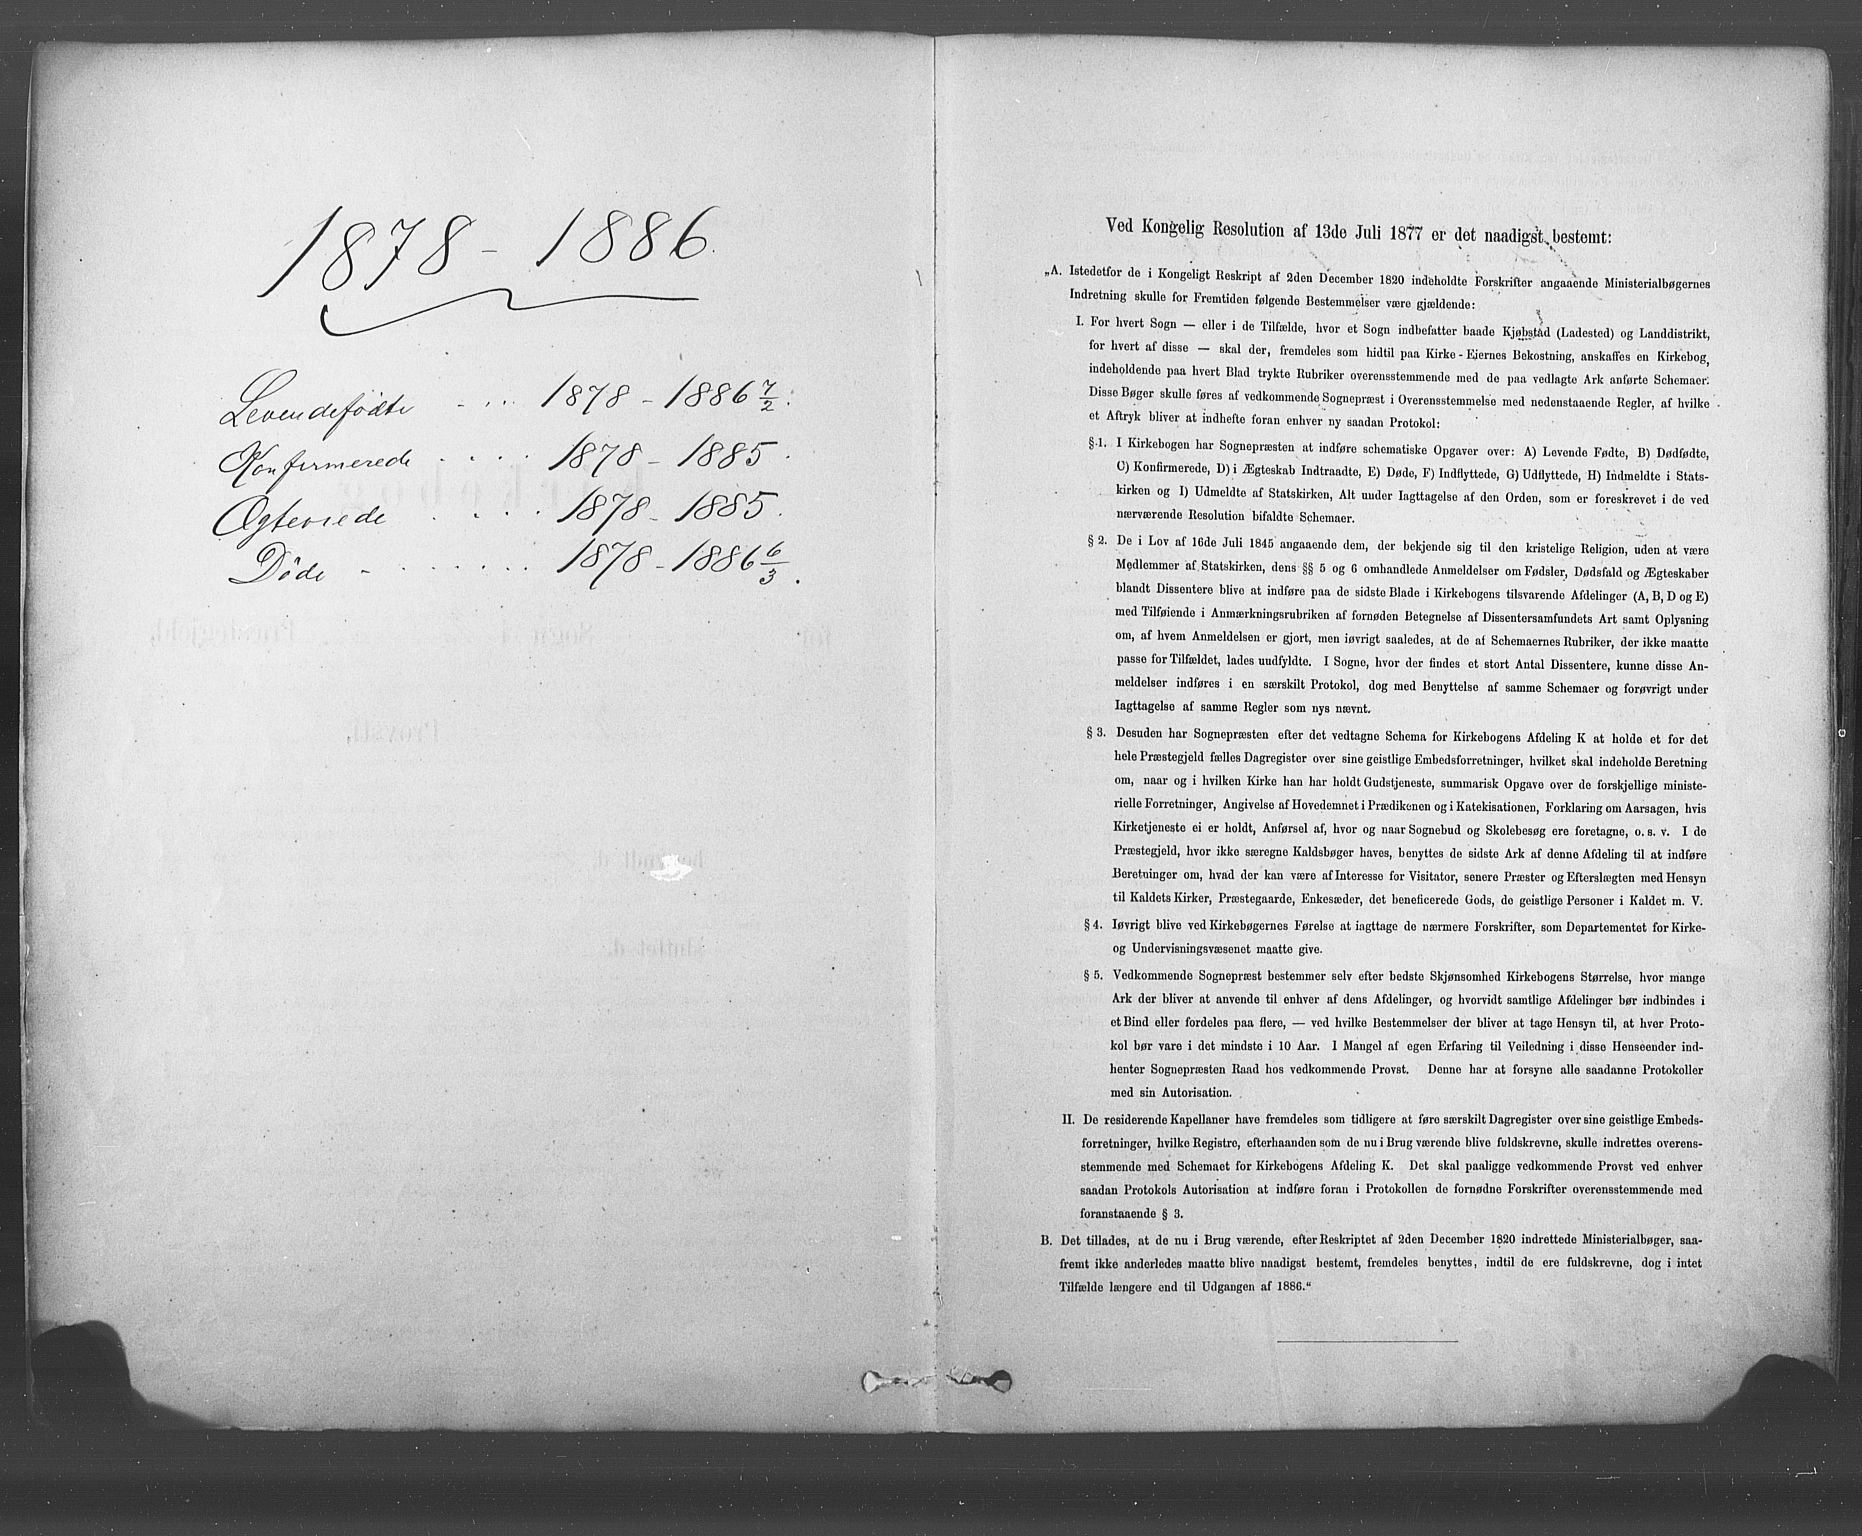 1878 - 1886.
Levendefødte - ... 1878 - 1886 7/2.
Konfirmerede .... 1878 - 1885.
Ægteviede . ... 1878 - 1885.
Døde - ....... 1878 - 1886 6/3.
Ved Kongelig Resolution af 13de Juli 1877 er det naadigst bestemt:
„A. Istedetfor de i Kongeligt Reskript af 2den December 1820 indeholdte Forskrifter angaaende Ministerialbøgernes
Indretning skulle for Fremtiden følgende Bestemmelser være gjældende:
I. For hvert Sogn — eller i de Tilfælde, hvor et Sogn indbefatter baade Kjøbstad (Ladested) og Landdistrikt,
for hvert af disse — skal der, fremdeles som hidtil paa Kirke-Eiernes Bekostning, anskaffes en Kirkebog,
indeholdende paa hvert Blad trykte Rubriker overensstemmende med de paa vedlagte Ark anførte Schemaer.
Disse Bøger skulle føres af vedkommende Sognepræst i Overensstemmelse med nedenstaaende Regler, af hvilke
et Aftryk bliver at indhefte foran enhver ny saadan Protokol:
§ 1. I Kirkebogen har Sognepræsten at indføre schematiske Opgaver over: A) Levende Fødte, B) Dødfødte,
C) Konfirmerede, D) i Ægteskab Indtraadte, E) Døde, F) Indflyttede, G) Udflyttede, H) Indmeldte i Stats-
kirken og I) Udmeldte af Statskirken, Alt under Iagttagelse af den Orden, som er foreskrevet i de ved
nærværende Resolution bifaldte Schemaer.
§ 2. De i Lov af 16de Juli 1845 angaaende dem, der bekjende sig til den kristelige Religion, uden at være
Medlemmer af Statskirken, dens §§ 5 og 6 omhandlede Anmeldelser om Fødsler, Dødsfald og Ægteskaber
blandt Dissentere blive at indføre paa de sidste Blade i Kirkebogens tilsvarende Afdelinger (A, B, D og E)
med Tilføiende i Anmærkningsrubriken af fornøden Betegnelse af Dissentersamfundets Art samt Oplysning
om, af hvem Anmeldelsen er gjort, men iøvrigt saaledes, at de af Schemaernes Rubriker, der ikke maatte
passe for Tilfældet, lades uudfyldte. I Sogne, hvor der findes et stort Antal Dissentere, kunne disse An-
meldelser indføres i en særskilt Protokol, dog med Benyttelse af samme Schemaer og forøvrigt under
Iagttagelse af samme Regler som nys nævnt.
§ 3. Desuden har Sognepræsten efter det vedtagne Schema for Kirkebogens Afdeling K at holde et for det
hele Præstegjeld fælles Dagregister over sine geistlige Embedsforretninger, hvilket skal indeholde Beretning
om, naar og i hvilken Kirke han har holdt Gudstjeneste, summarisk Opgave over de forskjellige ministe-
rielle Forretninger, Angivelse af Hovedemnet i Prædikenen og i Katekisationen, Forklaring om Aarsagen, hvis
Kirketjeneste ei er holdt, Anførsel af, hvor og naar Sognebud og Skolebesøg ere foretagne, o. s. v. I de
Præstegjeld, hvor ikke særegne Kaldsbøger haves, benyttes de sidste Ark af denne Afdeling til at indføre
Beretninger om, hvad der kan være af Interesse for Visitator, senere Præster og Efterslægten med Hensyn
til Kaldets Kirker, Præstegaarde, Enkesæder, det beneficerede Gods, de geistlige Personer i Kaldet m. V.
§ 4. Iøvrigt blive ved Kirkebøgernes Førelse at iagttage de nærmere Forskrifter, som Departementet for Kirke-
og Undervisningsvæsenet maatte give.
§ 5. Vedkommende Sognepræst bestemmer selv efter bedste Skjønsomhed Kirkebogens Størrelse, hvor mange
Ark der bliver at anvende til enhver af dens Afdelinger, og hvorvidt samtlige Afdelinger bør indbindes i
et Bind eller fordeles paa flere, — ved hvilke Bestemmelser der bliver at tage Hensyn til, at hver Proto-
kol bør vare i det mindste i 10 Aar. I Mangel af egen Erfaring til Veiledning i disse Henseender ind-
henter Sognepræsten Raad hos vedkommende Provst. Denne har at forsyne alle saadanne Protokoller
med sin Autorisation.
II. De residerende Kapellaner have fremdeles som tidligere at føre særskilt Dagregister over sine geistlige Embeds-
forretninger, hvilke Registre, efterhaanden som de nu i Brug værende blive fuldskrevne, skulle indrettes overens-
stemmende med Schemaet for Kirkebogens Afdeling K. Det skal paaligge vedkommende Provst ved enhver
saadan Protokols Autorisation at indføre foran i Protokollen de fornødne Forskrifter overensstemmende med
foranstaaende § 3.
B. Det tillades, at de nu i Brug værende, efter Reskriptet af 2den December 1820 indrettede Ministerialbøger, saa-
fremt ikke anderledes maatte blive naadigst bestemt, fremdeles benyttes, indtil de ere fuldskrevne, dog i intet
Tilfælde længere end til Udgangen af 1886.“